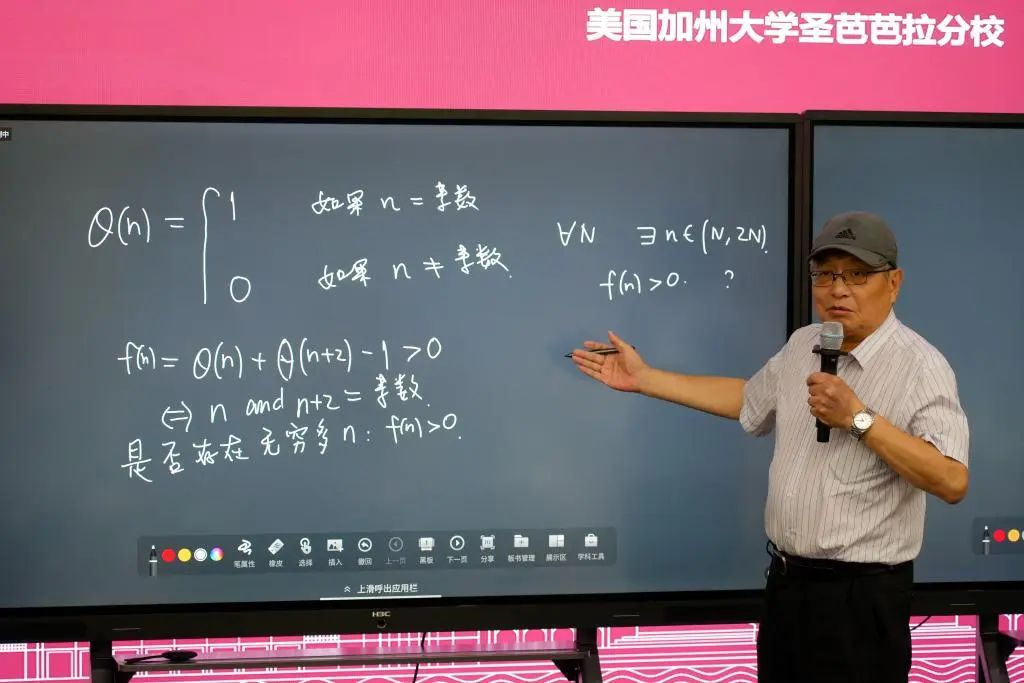 美国加州大学圣芭芭拉分校
中
θ(n) = { 1 如果 n = 素数
0 如果 n ≠ 素数.
∀N ∃ n ∈ (N, 2N).
f(n) > 0. ?
f(n) = θ(n) + θ(n+2) - 1 > 0
⇔ n and n+2 = 素数.
是否存在无穷多 n: f(n) > 0.
笔属性 橡皮 选择 插入 撤回 上一页 黑板 下一页 分享 板书管理 展示区 学科工具
上滑呼出应用栏
H3C
adidas